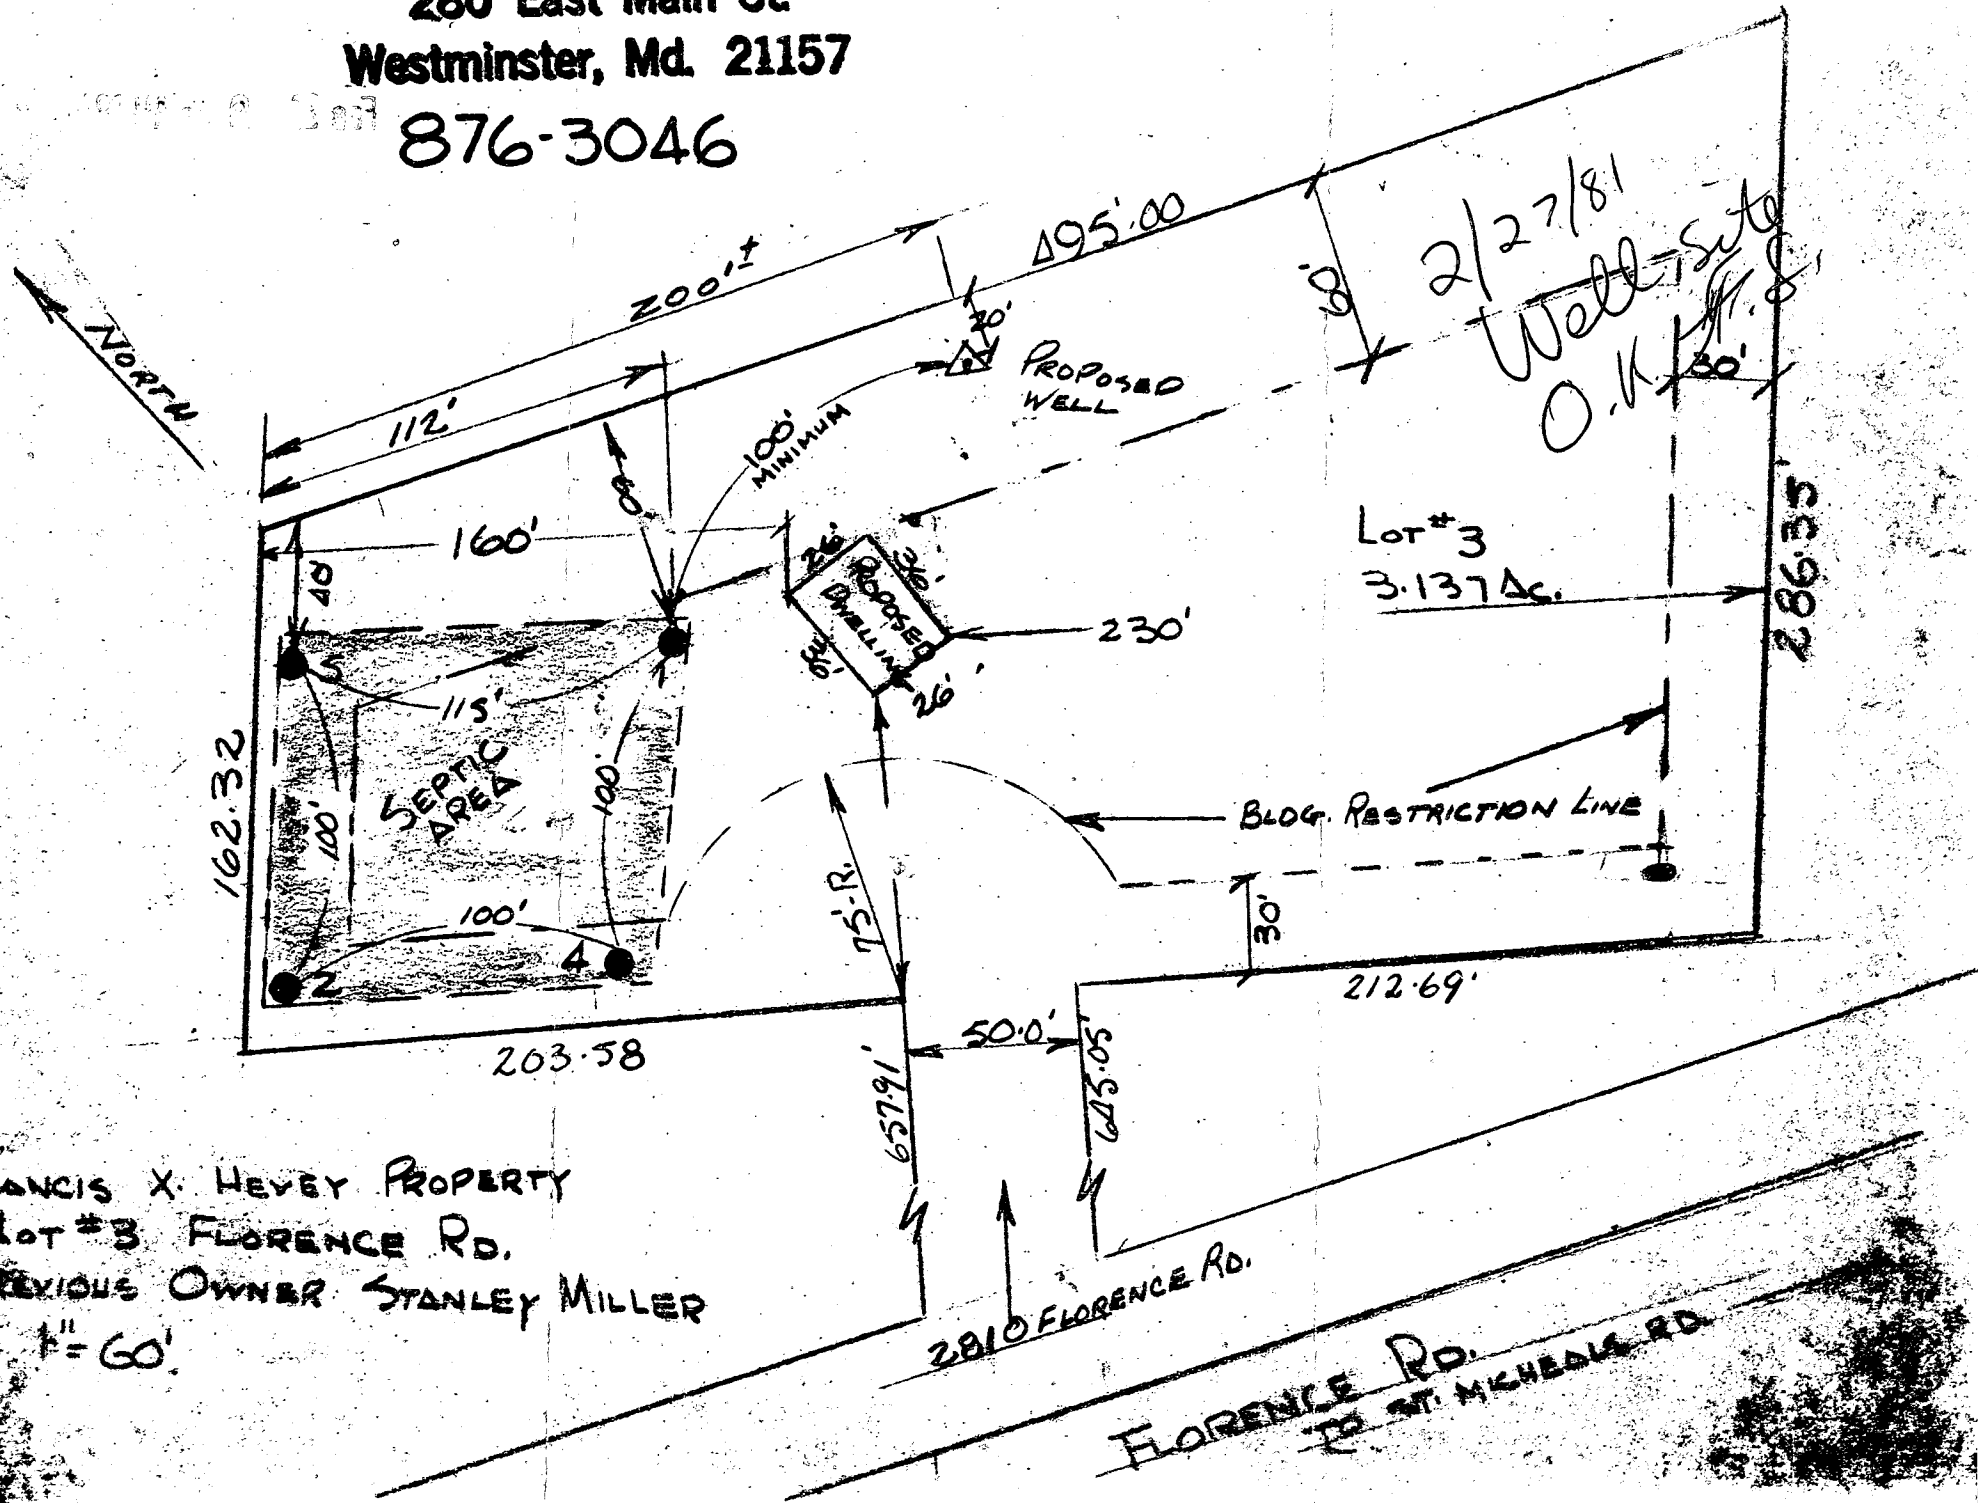 280 East Main St.
Westminster, Md. 21157
876-3046
NORTH
200'±
495'.00
112'
20'
PROPOSED
WELL
100'
MINIMUM
60'
60'
2/27/81
Well Site
O.K.
30'
160'
40'
26'
36'
PROPOSED
DWELLING
36'
26'
230'
LOT #3
3.137 AC.
286.35'
5
115'
SEPTIC
AREA
100'
100'
162.32
100'
2
4
75'-R.
BLDG. RESTRICTION LINE
30'
212.69'
203.58
50.0'
657.91'
645.05'
ANCIS X. HEVEY PROPERTY
LOT #3 FLORENCE RD.
EVIOUS OWNER STANLEY MILLER
1"=60'
2810 FLORENCE RD.
FLORENCE RD.
TO ST. MICHEALS RD.